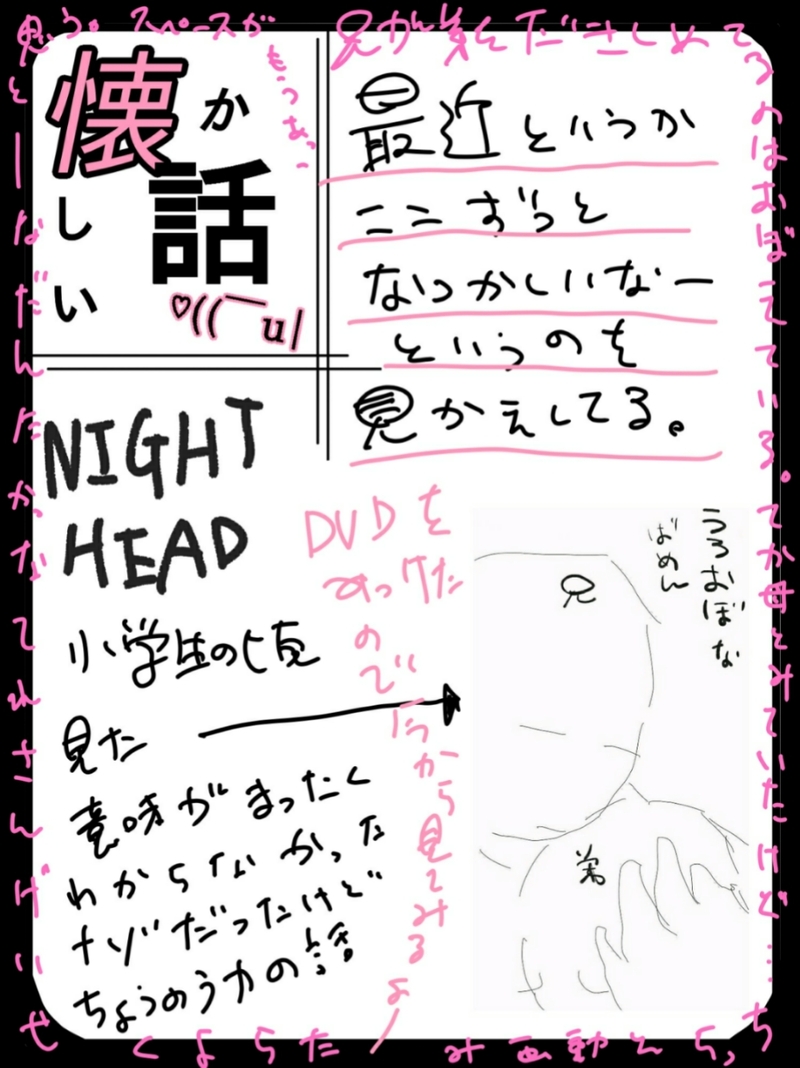 懐かしい話
♡((￣u|
最近というか
ここずっと
なつかしいなー
というのを
見かえしてる。
NIGHT
HEAD
小学生の頃
見た
意味がまったく
わからなかった
ナゾだったけど
ちょうのう力の話
DVDを
みつけた
ので
今から見てみるよー
うろおぼな
ばめん
兄
弟
兄が弟をだきしめて
るのはおぼえている。てか母とみていたけど…
ちらっと動画みたらよく
せいげんされてなかったんだなーと
思う。スペースが